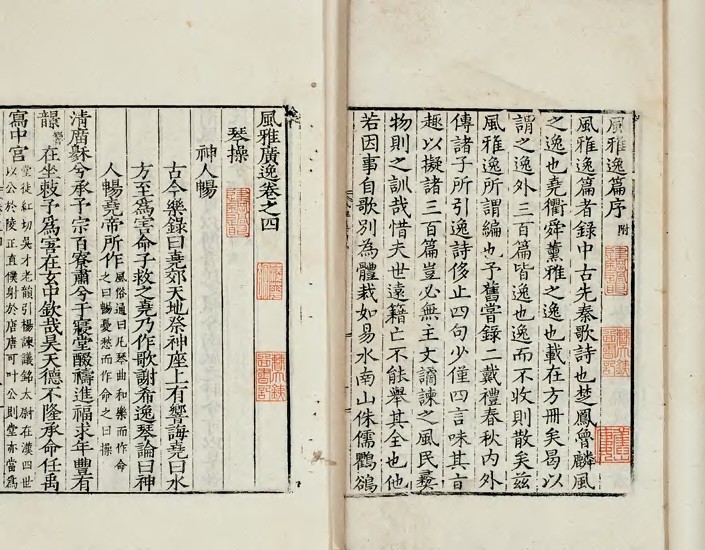 風雅逸篇序 附
風雅逸篇者錄中古先秦歌詩也楚鳳魯麟風
之逸也堯衢舜薰雅之逸也載在方冊矣曷以
謂之逸外三百篇皆逸也逸而不收則散矣茲
風雅逸所謂編也予舊嘗錄二戴禮春秋內外
傳諸子所引逸詩侈止四句少僅四言味其言
趣以擬諸三百篇豈必無主文譎諫之風民彝
物則之訓哉惜夫世遠籍亡不能舉其全也他
若因事自歌別為體栽如易水南山侏儒鸜鵒
風雅廣逸卷之四
琴操
神人暢
古今樂錄曰堯郊天地祭神座上有響誨堯曰水
方至為害命子救之堯乃作歌謝希逸琴論曰神
人暢堯帝所作 風俗通曰凡琴曲和樂而作命
之曰暢憂愁而作命之曰操
清廟穆兮承予宗百寮肅兮于寢堂醊禱進福求年豐有
響在坐敕予為害在玄中欽哉昊天德不隆承命任禹
寫中宮 堂徒紅切吳才老韻引楊諫議銘太尉在漢四世
以公於陵正直僕射於唐唐可叶公則堂亦當為